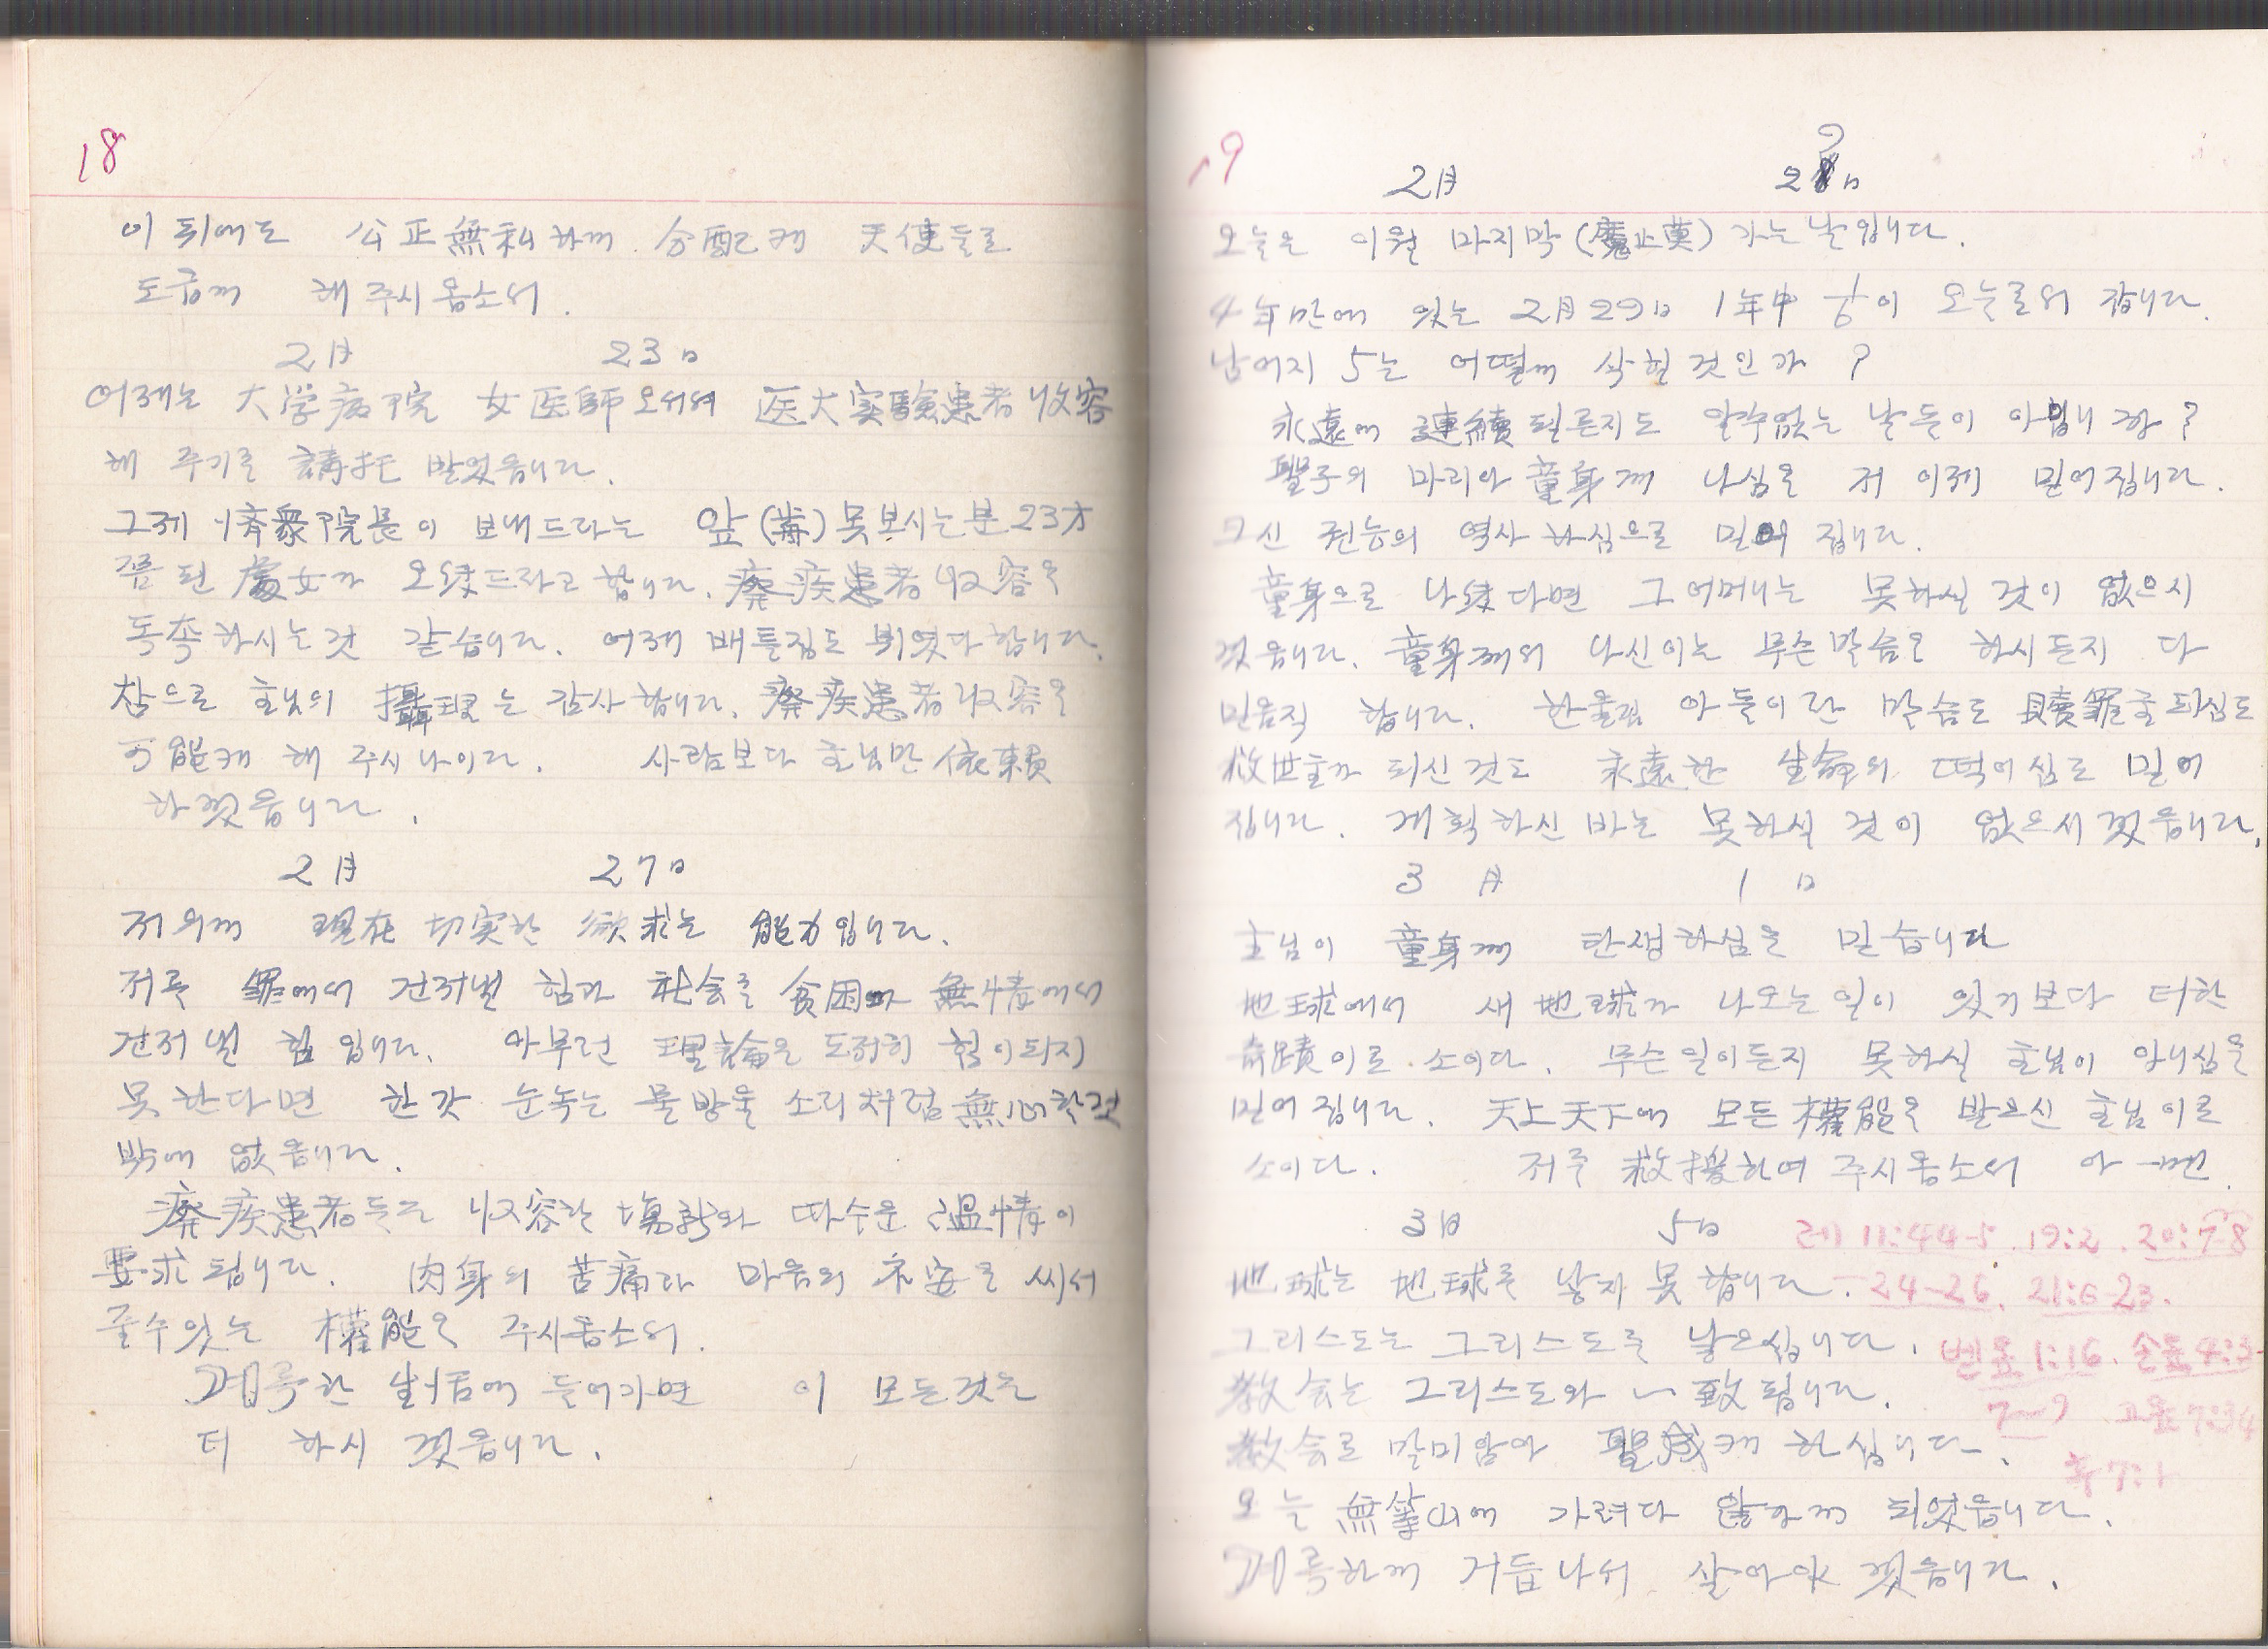 18
이 뒤에도 公正無私하게 分配케 天使들로
도웁게 해 주시옵소서.
2月 23日
어제는 大学病院 女医師 오셔서 医大実験患者 收容
해 주기를 請托 받었읍니다.
그제 济衆院長이 보내드라는 앞(盲) 못보시는분 23才
쯤 된 處女가 오섰드라고 합니다. 癈疾患者 収容을
독촉하시는것 같습니다. 어제 배틀집도 뷔였다 합니다.
참으로 主님의 攝理는 감사합니다. 癈疾患者 収容을
可能케 해 주시나이다. 사람보다 主님만 依賴
하겠읍니다.
2月 27日
저의게 現在 切実한 欲求는 能力입니다.
저를 罪에서 건저낼 힘과 社会를 貧困과 無情에서
건저 낼 힘 입니다. 아무런 理論은 도저히 힘이되지
못한다면 한갓 눈녹는 물방울 소리처럼 無心할것
밖에 없읍니다.
癈疾患者들을 収容할 場所와 따수운 温情이
要求됩니다. 肉身의 苦痛과 마음의 不安을 씨서
줄수있는 權能을 주시옵소서.
거룩한 生活에 들어가면 이 모든것을
더 하시겠읍니다.
19
2月 29日
오늘은 이월 마지막(魔止莫) 가는날입니다.
4年만에 있는 2月29日 1年中 1/6이 오늘로써 갑니다.
남어지 5는 어떻게 삭힐것인가?
永遠에 連續될른지도 알수없는 날들이 아닙니까?
聖子의 마리아 童身께 나심을 저 이제 믿어집니다.
그신 권능의 역사 하심으로 믿어 집니다.
童身으로 나섰다면 그 어머니는 못하실 것이 없으시
겠읍니다. 童身께서 나신이는 무슨말슴을 하시든지 다
믿음직 합니다. 한울님 아들이란 말슴도 贖罪주되심도
救世主가 되신것도 永遠한 生命의 떡이심도 믿어
집니다. 계획하신 바는 못하실 것이 없으시겠읍니다.
3月 1日
主님이 童身께 탄생하심을 믿습니다
地球에서 새 地球가 나오는일이 있기보다 더한
奇蹟이로소이다. 무슨일이든지 못하실 主님이 아니심을
믿어 집니다. 天上天下에 모든 權能을 받으신 主님이로
소이다. 저를 救援하여 주시옵소서 아ー멘.
3月 5日 레 11:44-5. 19:2. 20:7-8
地球는 地球를 낳지 못합니다. -24-26. 21:6-23.
그리스도는 그리스도를 낳으십니다. 벧전 1:16. 살전 4:3-
敎会는 그리스도와 一致됩니다. 7-9 고전 7:34
敎会로 말미암아 聖成케 하십니다. 후 7:1
오늘 無等山에 가려다 않가게 되었읍니다.
거룩하게 거듭나서 살아야 겠읍니다.